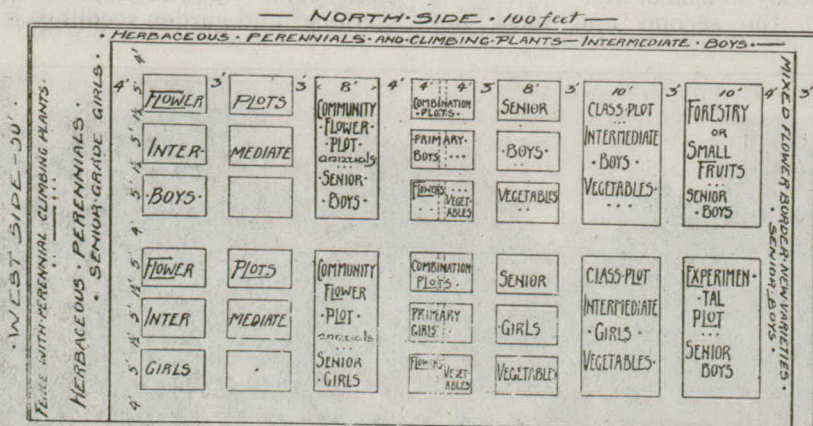 NORTH·SIDE · 100 feet
· HERBACEOUS · PERENNIALS · AND · CLIMBING · PLANTS — INTERMEDIATE · BOYS · —
· WEST SIDE — 50' ·
FENCE WITH PERENNIAL CLIMBING PLANTS ·
HERBACEOUS · PERENNIALS ·
· SENIOR GRADE GIRLS ·
MIXED FLOWER BORDER · NEW VARIETIES ·
SENIOR · BOYS ·
4' 3' 3' 8' 4' 4' 4' 3' 8' 3' 10' 3' 10' 4' 3'
4'
5'
1½
5'
1½
5'
4'
5'
1½'
5'
1½
5'
4'
FLOWER
INTER-
· BOYS ·
PLOTS
MEDIATE
COMMUNITY
· FLOWER ·
· PLOT ·
annuals
· SENIOR ·
· BOYS ·
COMBINATION
· PLOTS ·
PRIMARY ·
BOYS · · · ·
FLOWERS · · ·
VEGET-
ABLES
SENIOR
· BOYS ·
VEGETABLES
CLASS · PLOT
· · ·
INTERMEDIATE
· BOYS ·
VEGETABLES ·
FORESTRY
OR
SMALL
FRUITS
· · ·
SENIOR
· BOYS
FLOWER
INTER
GIRLS
PLOTS
MEDIATE
·
COMMUNITY
FLOWER
· PLOT ·
annuals
· · ·
SENIOR
· GIRLS
COMBINATION
PLOTS ·
PRIMARY
GIRLS ·
FLOWERS
VEGET-
ABLES
SENIOR
· GIRLS
VEGETABLES
CLASS · PLOT
· · ·
INTERMEDIATE
· GIRLS ·
VEGETABLES ·
EXPERIMEN-
TAL
PLOT
· · ·
SENIOR
BOYS